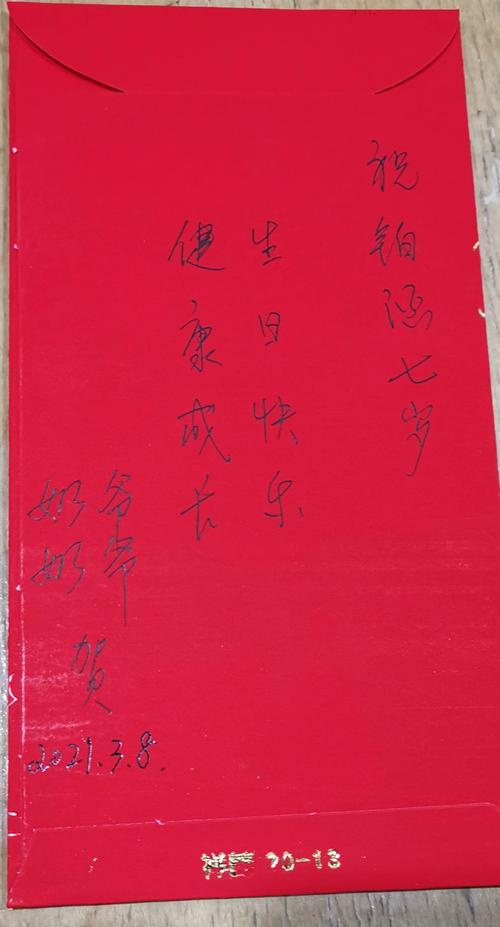 祝铂涵七岁
生日快乐
健康成长
爷爷
奶奶
贺
2021.3.8.
70-13